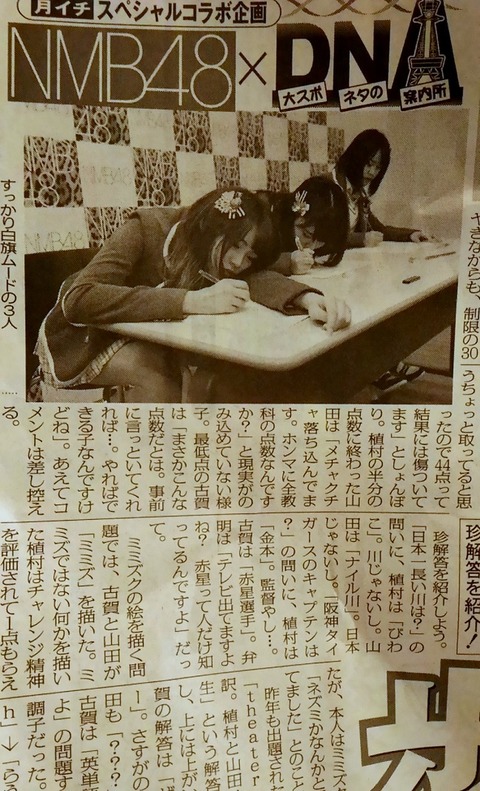 月イチ スペシャルコラボ企画
NMB48×DNA
大スポ ネタの 案内所
NMB48
すっかり白旗ムードの3人
やきながらも、制限の30
うちょっと取ってると思
ったので44点って
結果には傷ついて
ます」としょんぼ
り。植村の半分の
点数に終わった山
田は「メチャクチ
ャ落ち込んでま
す。ホンマに全教
科の点数なんです
か?」と現実がの
み込めていない様
子。最低点の古賀
は「まさかこんな
点数だとは。事前
に言っといてくれ
れば…。やればで
きる子なんですけ
どね」。あえてコ
メントは差し控え
る。
珍解答を紹介!
珍解答を紹介しよう。
「日本一長い川は?」の
問いに、植村は「びわ
こ」。川じゃないし。山
田は「ナイル川」。日本
じゃないし。「阪神タイ
ガースのキャプテンは
?」の問いに、植村は
「金本」。監督やし…。
古賀は「赤星選手」。弁
明は「テレビ出てますよ
ね? 赤星って人だけ知
ってるんですよ」だっ
て。
ミミズクの絵を描く問
題では、古賀と山田が
「ミミズ」を描いた。ミ
ミズではない何かを描い
た植村はチャレンジ精神
を評価されて1点もらえ
たが、本人はミミズク
「ネズミかなんかと
てました」とのこと
昨年も出題された
「theater
訳。植村と山田
生」という解答
し、上には上が
賀の解答は「ぜ
ー」。さすがの
田も「???
古賀は「英単語
よ」の問題す
調子だった。
h」→「らう